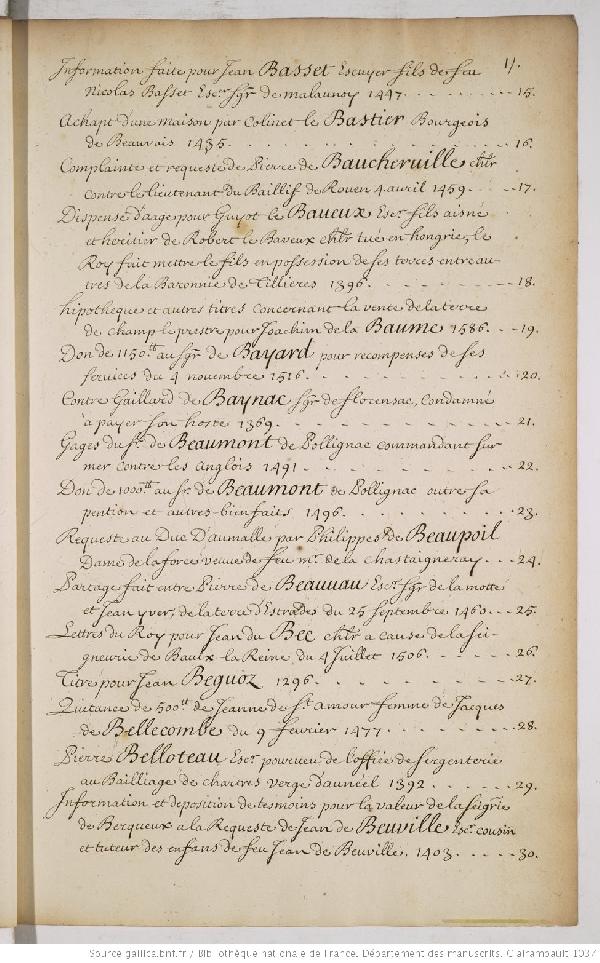 Information faite pour Jean Basset Escuyer fils de feu
Nicolas Basset Escr. sgr. de malaunoy 1447. . . . . . . . . . 15.
Achapt d'une maison par Colinet le Bastier Bourgeois
de Beauvais 1435. . . . . . . . . . 16.
Complainte et requeste de Pierre de Baucheruille chlr
contre le lieutenant du Baillif de Rouen 4 avril 1459 . . . . 17.
Dispense d'age pour Guyot le Baueux Escr. fils aisné
et heritier de Robert le Baveux chlr tué en hongrie, le
Roy fait mettre le fils en possession de ses terres entre au-
tres de la Baronnie de Tillieres 1396. . . . . . . . . . 18.
hipotheque et autres titres concernant la vente de la terre
de champ-le-prestre pour Joachim de la Baume 1586. . . . 19.
Don de 1150tt au sgr. de Bayard pour recompenses de ses
services du 4 novembre 1516. . . . . . . . . . 20.
Contre Gaillard de Baynac sgr. de florensac, condamné
a payer son hoste 1369. . . . . . . . . . 21.
Gages du sr. de Beaumont de Pollignac commandant sur
mer contre les anglois 1491. . . . . . . . . . 22.
Don de 1000tt au sr. de Beaumont de Pollignac outre sa
pention et autres bienfaits 1496. . . . . . . . . . 23.
Requeste au Duc D'aumalle par Philippes de Beaupoil
Dame de la force veuue de feu mr. de la Chastaigneray. . . . 24.
Partage fait entre Pierre de Beauuau Escr. sgr. de la motte
et Jean yver, de la terre d'Estrades du 25 septembre 1460. . . 25.
Lettres du Roy pour Jean du Bec chlr a cause de la sei-
gneurie de Baulx-la-Reine, du 4 Juillet 1506. . . . . . 26.
Titre pour Jean Beguoz 1296. . . . . . . . . . 27.
Quitance de 500tt. de Jeanne de st. amour femme de Jacques
de Bellecombe du 9 fevrier 1477. . . . . . . . 28.
Pierre Belloteau Escr. pourueu de l'office de sergenterie
au Bailliage de chartres verge d'auneel 1392 . . . . . . 29.
Information et deposition de tesmoins pour la valeur de la sei͠grie
de Berqueux a la Requeste de Jean de Beuville Escr. cousin
et tuteur des enfans de feu Jean de Beuville. 1403. . . . . . 30.
Source gallica.bnf.fr / Bibliothèque nationale de France. Département des manuscrits. Clairambault 1037